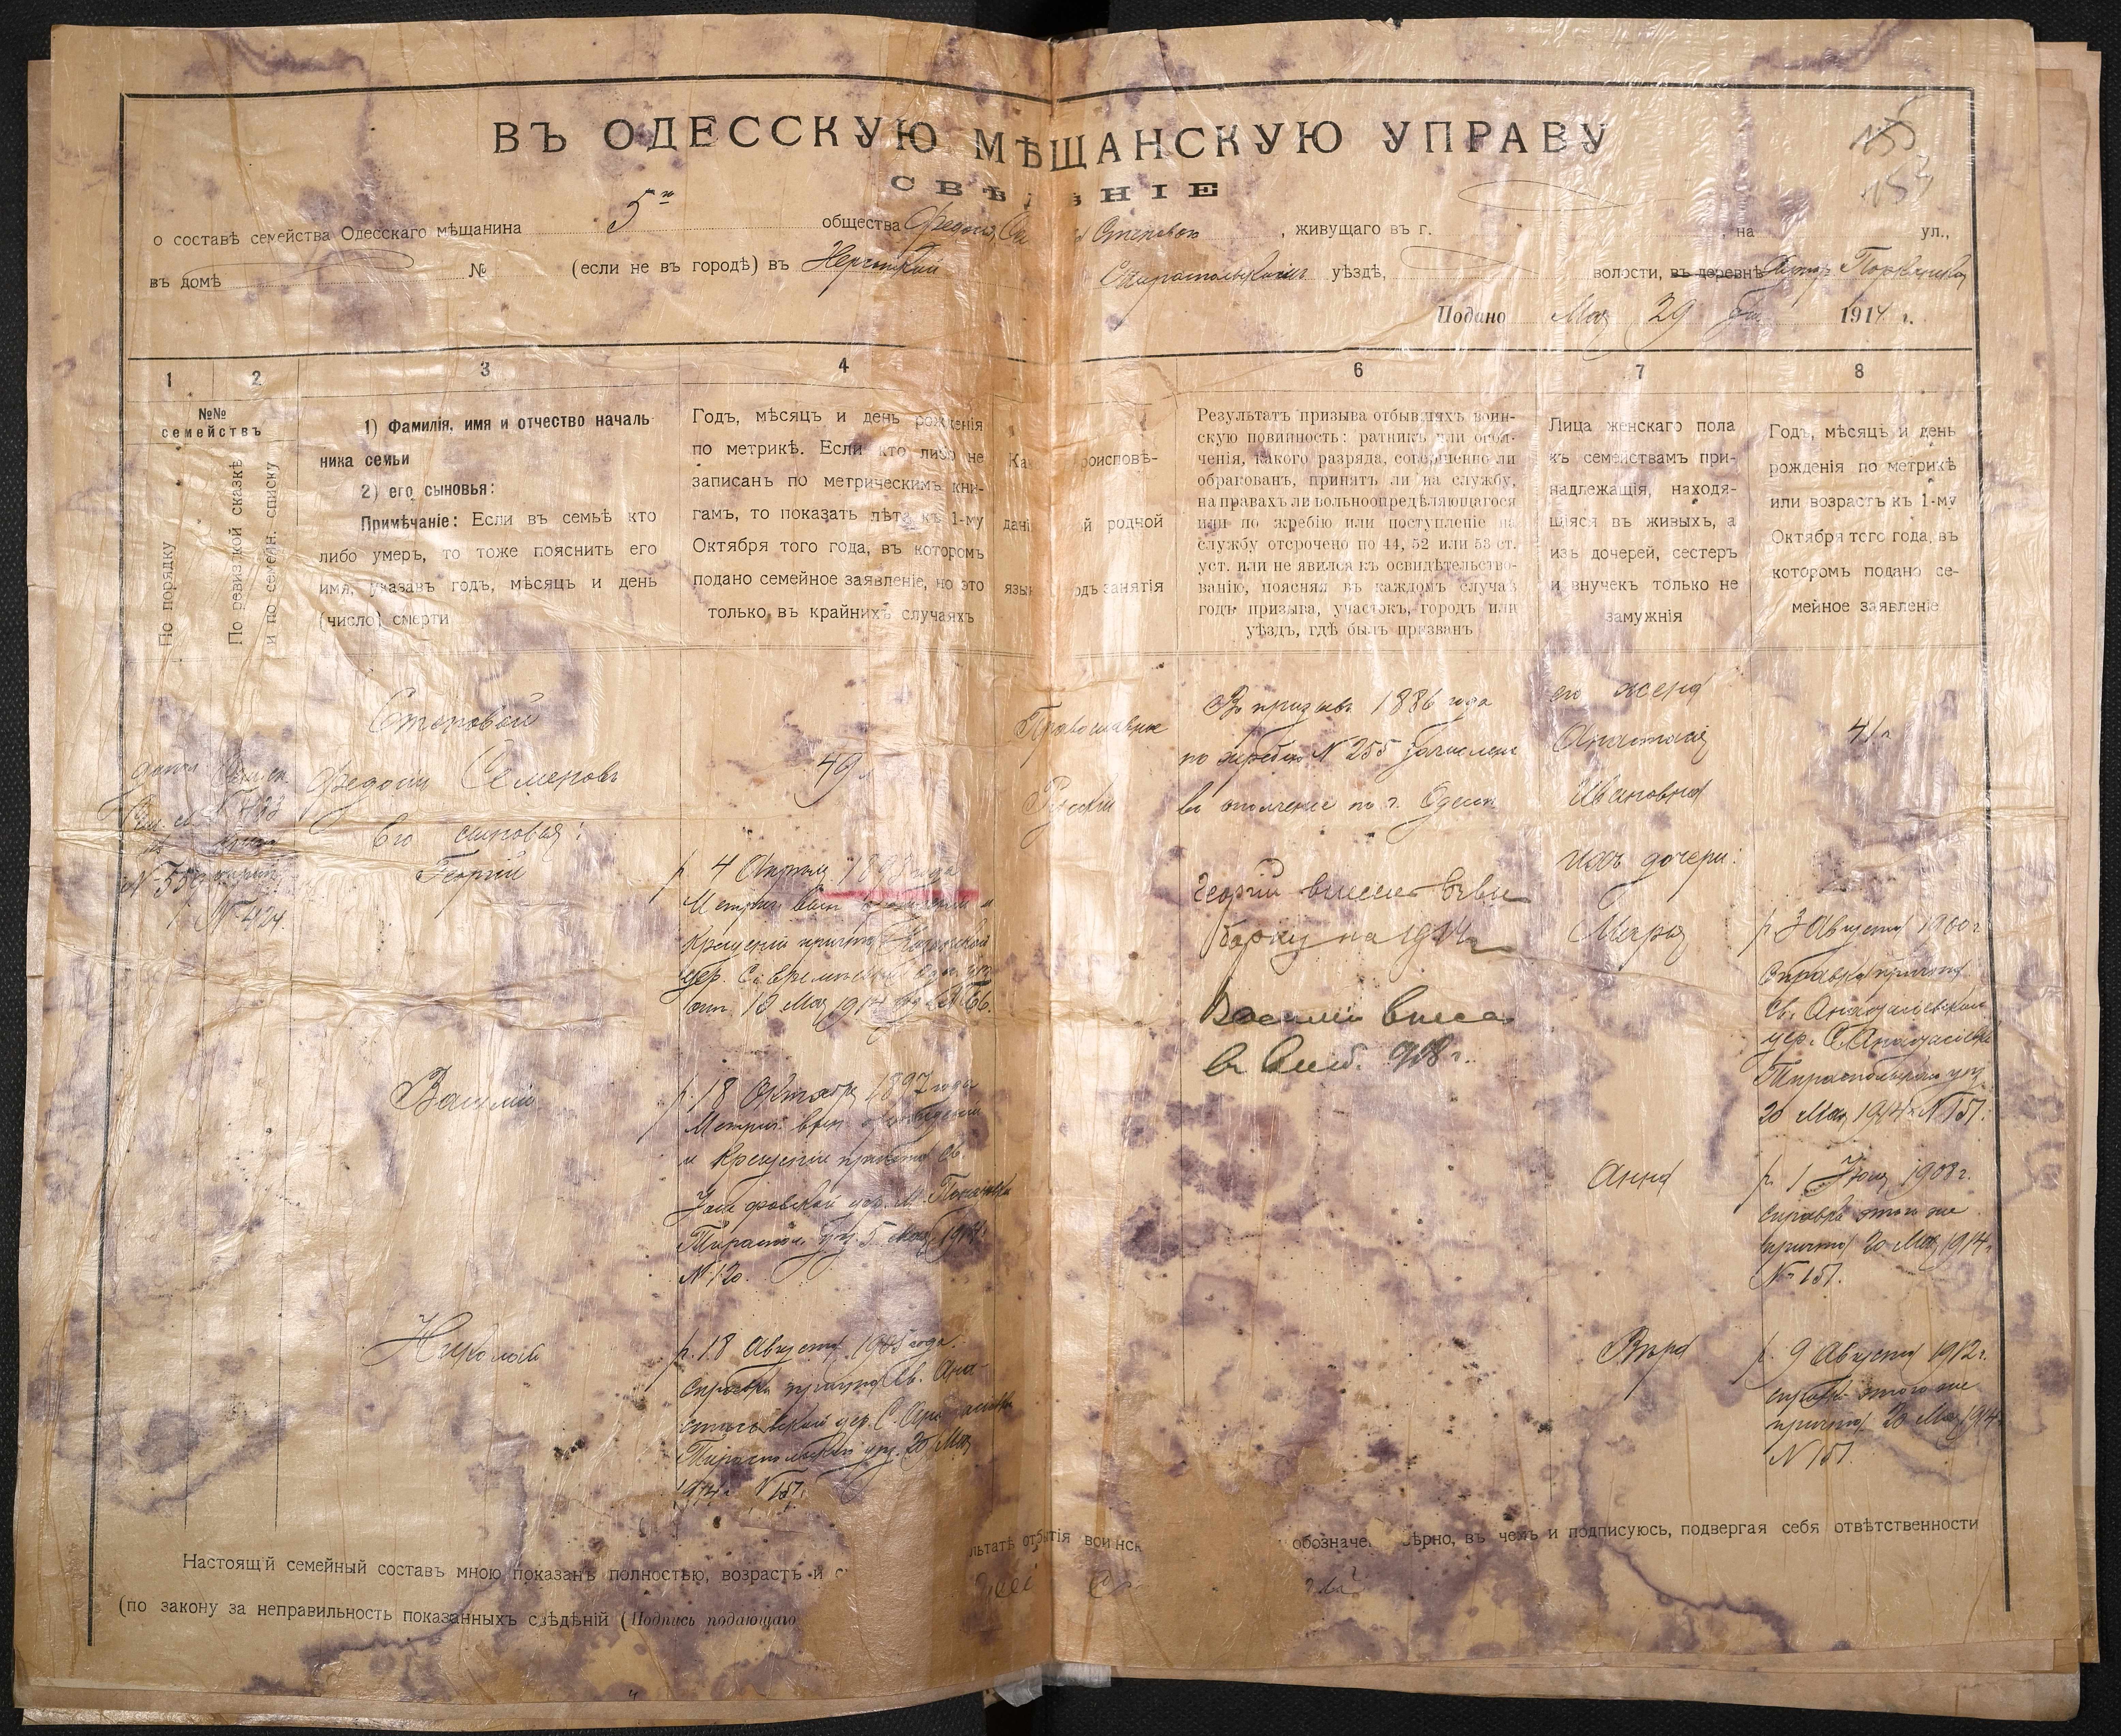 155
153
ВЪ ОДЕССКУЮ МѢЩАНСКУЮ УПРАВУ
СВѢ НІЕ
о составѣ семейства Одесскаго мѣщанина 5го общества Федосія Степового, живущаго въ г. , на ул.,
въ домѣ № (если не въ городѣ) въ Тираспольскомъ уѣздѣ, волости, въ деревнѣ
Подано Мая 29 дня 1914 г.
1 2 3 4 6 7 8
№№ семействъ
По порядку
По ревизской сказкѣ и по семейн. списку
1) Фамилія, имя и отчество началь-
ника семьи
2) его сыновья:
Примѣчаніе: Если въ семьѣ кто
либо умеръ, то тоже пояснить его
имя, указавъ годъ, мѣсяцъ и день
(число) смерти
Годъ, мѣсяцъ и день рожденія
по метрикѣ. Если кто либо не
записанъ по метрическимъ кни-
гамъ, то показать лѣта къ 1-му
Октября того года, въ которомъ
подано семейное заявленіе, но это
только, въ крайнихъ случаяхъ
Как роисповѣ-
дані й родной
язык одъ занятія
Результатъ призыва отбывшихъ воин-
скую повинность: ратникъ или опол-
ченія, какого разряда, совершенно ли
обракованъ, принятъ ли на службу,
на правахъ ли вольноопредѣляющагося
или по жребію или поступленіе на
службу отсрочено по 44, 52 или 53 ст.
уст. или не явился къ освидѣтельство-
ванію, поясняя въ каждомъ случаѣ
годъ призыва, участокъ, городъ или
уѣздъ, гдѣ былъ призванъ
Лица женскаго пола
къ семействамъ при-
надлежащія, находя-
щіяся въ живыхъ, а
изъ дочерей, сестеръ
и внучекъ только не
замужнія
Годъ, мѣсяцъ и день
рожденія по метрикѣ
или возрастъ къ 1-му
Октября того года, въ
которомъ подано се-
мейное заявленіе
Степовой
Федосій Семеновъ
49 л
Православн
Русскій
Въ призывъ 1886 года
по жребію № 255 зачисленъ
въ ополченіе по г. Одессѣ
его жена
Анастасія
Ивановна
41 л
№ 433
№ 559
№ 424.
Его сыновья:
Георгій
р. 4 Апрѣля 1893 года
Метрич. вып. о рожденіи и
крещеніи причта Казанской
цер.
отъ 10 Мая 1914 года № 66.
Георгій внесенъ въ вы-
борку на 1914 г.
Василій внесен
въ 1918 г.
изъ дочери:
Марія
р. 3 Августа 1900 г.
справка причта
Св. Анастасіевской
цер. С. Анастасіевки
Тираспольскаго уѣз.
20 Мая 1914 г. № 157.
Василій
р. 18 Октября 1897 года
Метрич. вып. о рожденіи
и крещеніи причта Св.
цер. М.
Тираспол. уѣз. 5 Мая 1914 г.
№ 120.
Анна
р. 1 Іюня 1908 г.
справка того же
причта 20 Мая 1914 г.
№ 157.
Николай
р. 18 Августа 1905 года.
справка причта Св. Ана-
стасіевской цер. С. Анастасіевки
Тираспольскаго уѣз. 20 Мая
1914 г. № 157.
Вѣра
р. 9 Августа 1912 г.
справка того же
причта 20 Мая 1914
№ 157.
Настоящій семейный составъ мною показанъ полностью, возрастъ и с льтатѣ отбытія воинск обозначе ѣрно, въ чемъ и подписуюсь, подвергая себя отвѣтственности
(по закону за неправильность показанныхъ свѣдѣній (Подпись подающаго